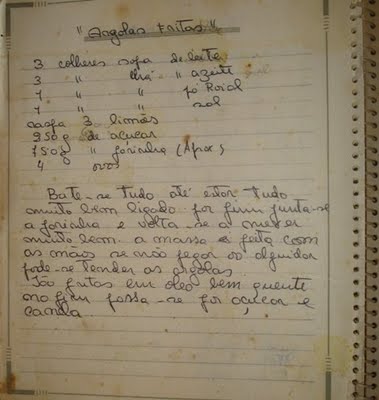 "Argolas Fritas"
3 colheres sopa de leite
3 " chá " azeite
1 " " pó Roial
1 " " sal
raspa 3 limões
250g de açucar
750g " farinha (Aprox)
4 ovos
Bate-se tudo até estar tudo
muito bem ligado por fim junta-se
a farinha e volta-se a mexer
muito bem a massa é feita com
as mãos se não pegar ao alguidar
pode-se tender as argolas
São fritas em óleo bem quente
no fim passa-se por açucar e
canela